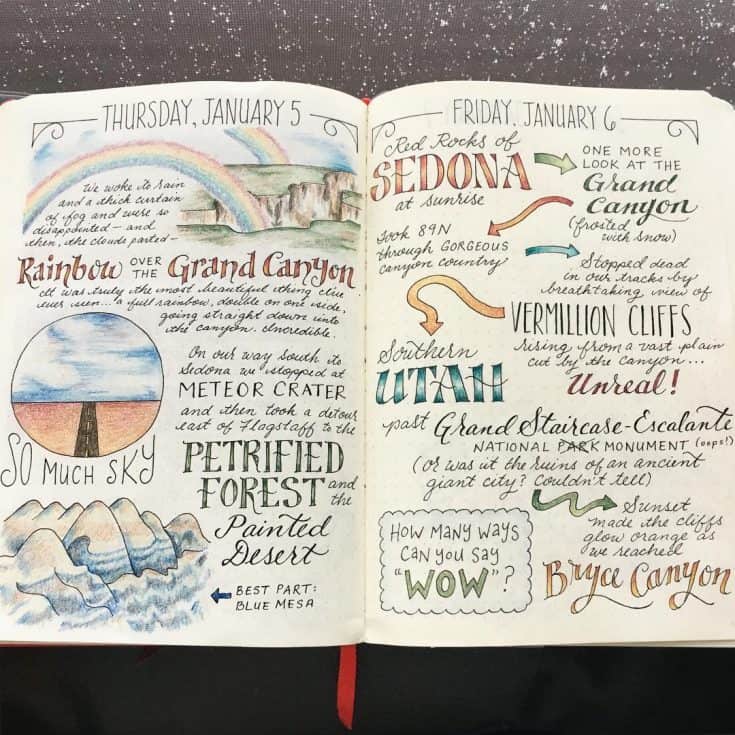 THURSDAY, JANUARY 5
We woke to rain
and a thick curtain
of fog and were so
disappointed — and
then, the clouds parted —
Rainbow OVER THE Grand Canyon
It was truly the most beautiful thing I've
ever seen... a full rainbow, double on one side,
going straight down into
the canyon. Incredible.
On our way south to
Sedona we stopped at
METEOR CRATER
and then took a detour
east of Flagstaff to the
PETRIFIED
FOREST and the
Painted
Desert
SO MUCH SKY
BEST PART:
BLUE MESA
FRIDAY, JANUARY 6
Red Rocks of
SEDONA
at sunrise
ONE MORE
LOOK AT THE
Grand
Canyon
(frosted
with snow)
Took 89N
through GORGEOUS
canyon country
Stopped dead
in our tracks by
breathtaking view of
VERMILLION CLIFFS
rising from a vast plain
cut by the canyon...
Unreal!
Southern
UTAH
past Grand Staircase-Escalante
NATIONAL PARK MONUMENT (oops!)
(or was it the ruins of an ancient
giant city? Couldn't tell)
HOW MANY WAYS
CAN YOU SAY
"WOW"?
Sunset
made the cliffs
glow orange as
we reached
Bryce Canyon